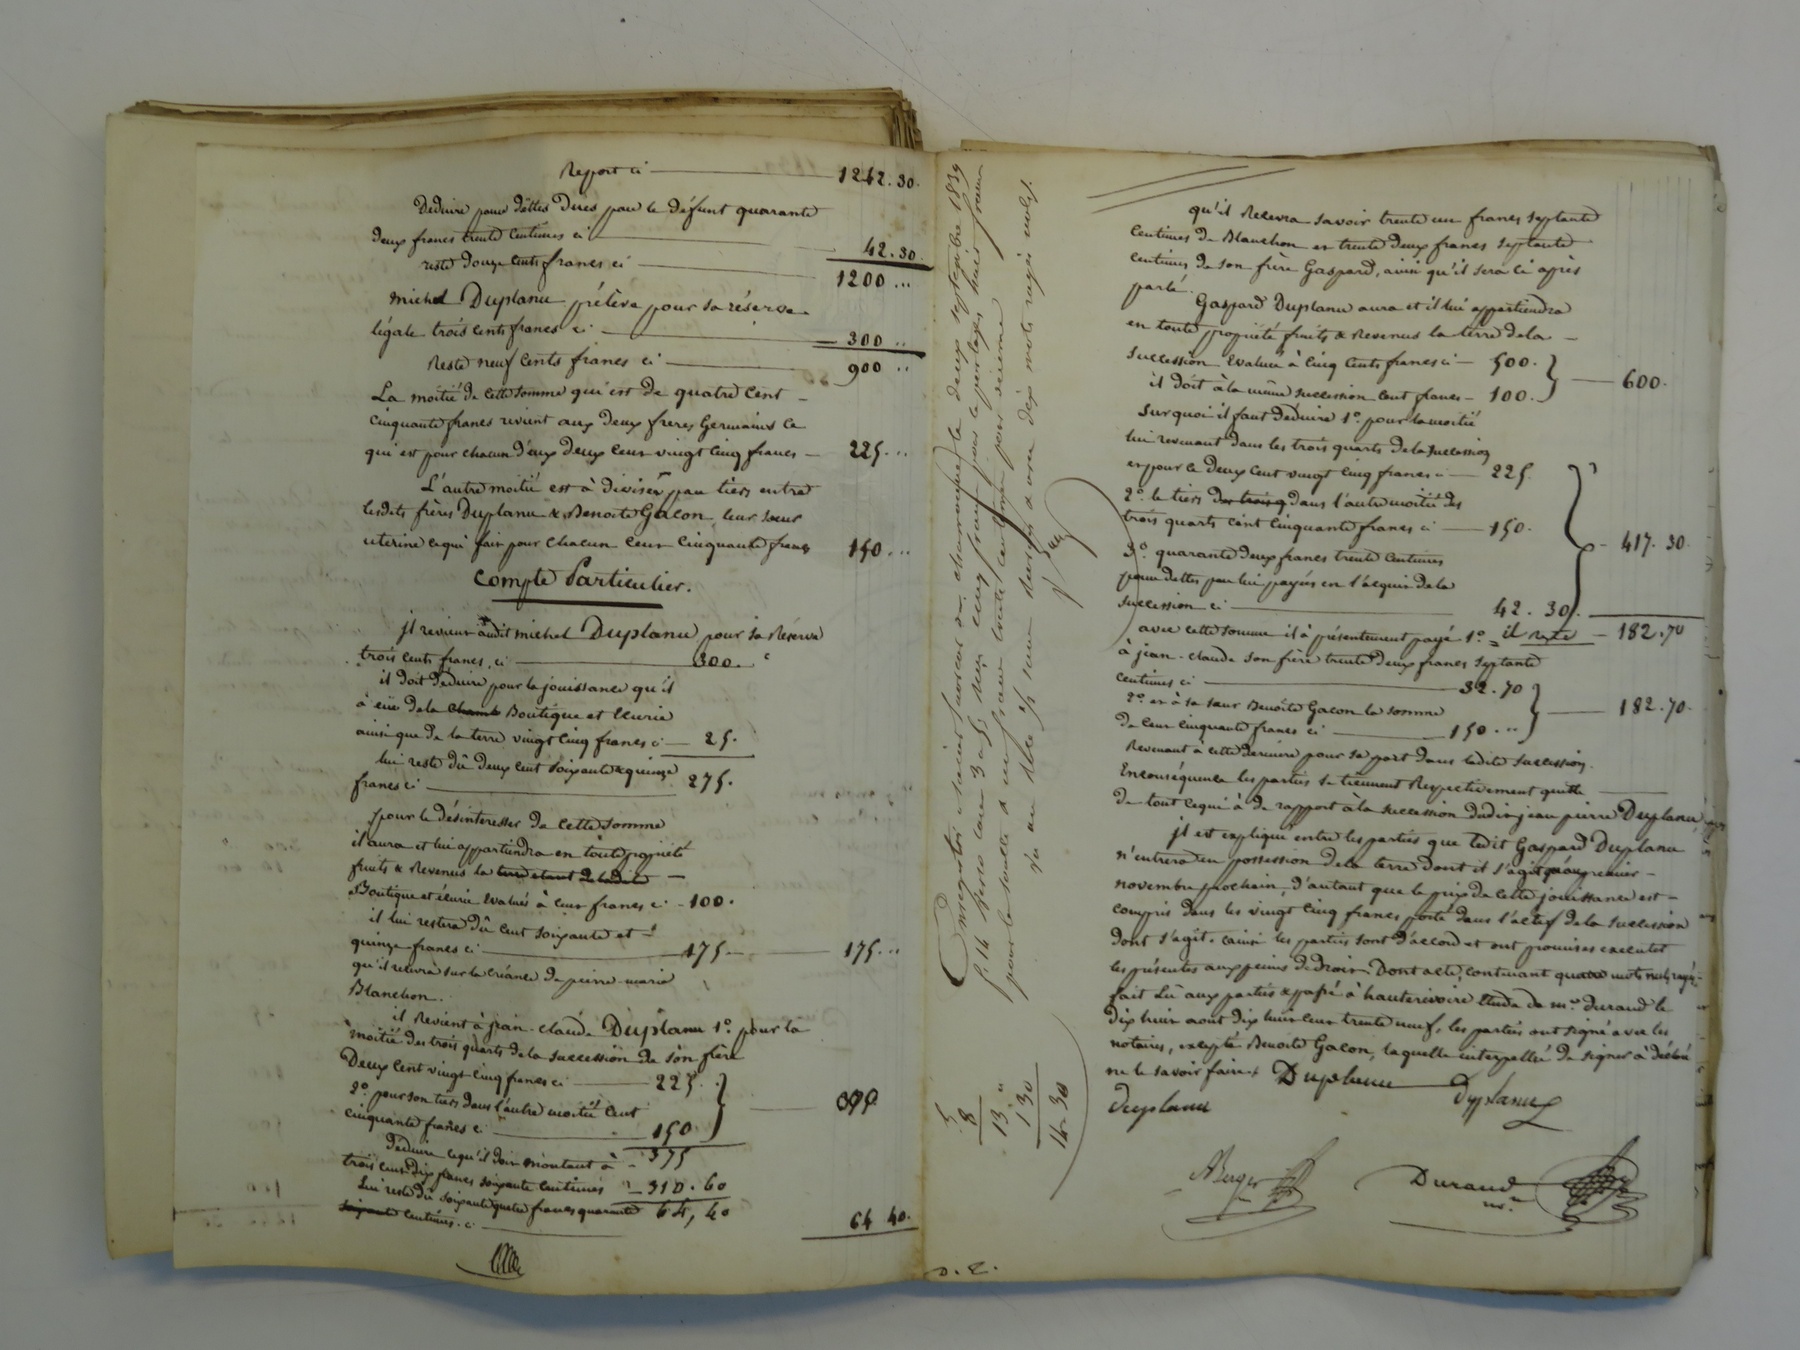 Report ci 1242.30.
Déduire pour dettes dues par le défunt quarante
deux francs trente centimes ci 42.30.
reste douze cents francs ci 1200 ...
michel Duplanu prélève pour sa réserve
légale trois cents francs ci 300 ..
Reste neuf cents francs ci 900 ..
La moitié de cette somme qui est de quatre cent
cinquante francs revient aux deux frères Germains ce
qui est pour chacun d'eux deux cent vingt cinq francs 225...
L'autre moitié est à diviser par tiers entre
lesdits frères Duplanu & Benoite Gacon, leur sœur
uterine ce qui fait pour chacun cent cinquante francs 150...
Compte Particulier.
jl revient audit michel Duplanu pour sa Réserve
trois cents francs, ci 300.
il doit déduire pour la jouissance qu'il
à eüe de la Boutique et Ecurie
ainsi que de la terre vingt cinq francs ci 25.
lui reste dû deux cent soixante & quinze
francs ci 275.
pour le désinteresser de cette somme
il aura et lui appartiendra en toute propriété
fruits & Revenus la terre étant de ladite
Boutique et écurie évalués à cent francs ci 100.
il lui restera dû cent soixante et
quinze francs ci 175 175...
qu'il recevra sur la créance de pierre marie
Blanchon.
il Revient à jean-claude Duplanu 1º. pour la
moitié des trois quarts de la succession de son frère
Deux cent vingt cinq francs ci 225.
2º. pour son tiers dans l'autre moitié cent
cinquante francs ci 150
Déduire ce qu'il doit montant à 375
trois cent dix francs soixante centimes 310.60
Lui reste dû soixante quatre francs quarante 64,40
soixante centimes. ci 64 40.
Enregistré à le deux septembre 1839
f. 14 Recto case 3 a 5, reçu cinq francs pour le partage huit francs
pour la soulte & un franc trente centimes pour décime
5
8
13 "
1 30
14-30
qu'il Recevra savoir trente un francs septante
centimes de Blanchon et trente deux francs septante
centimes de son frère Gaspard, ainsi qu'il sera ci après
parlé.
Gaspard Duplanu aura et il lui appartiendra
en toute propriété fruits & Revenus la terre de la
succession évaluée à cinq cents francs ci 500.
il doit à la même succession cent francs 100. 600.
sur quoi il faut déduire 1º. pour la moitié
lui revenant dans les trois quarts de la succession
et pour ce deux cent vingt cinq francs ci 225.
2º. le tiers dans l'autre moitié des
trois quarts cent cinquante francs ci 150.
3º. quarante deux francs trente centimes 417.30.
pour dettes par lui payées en l'acquit de la
succession ci 42.30.
avec cette somme il à présentement payé 1º. il reste 182.70
à jean-claude son frère trente deux francs septante
centimes ci 32.70
2º. et à sa sœur Benoite Gacon la somme 182.70.
de cent cinquante francs ci 150...
Revenant à cette dernière pour sa part dans ladite succession.
En conséquence les parties se tiennent Respectivement quitte
de tout ce qui à de rapport à la succession dudit jean pierre Duplanu,
jl est expliqué entre les parties que ledit Gaspard Duplanu
n'entrera en possession de la terre dont il s'agit qu'au premier
novembre prochain, d'autant que le prix de cette jouissance est
compris dans les vingt cinq francs porté dans l'actif de la succession
dont s'agit. ainsi les parties sont d'accord et ont promises exécuter
les présentes aux peines de droit. Dont acte, contenant quatre mots nuls rayés,
fait Lu aux parties & passé à hauterivoire étude de me. durand le
dix huit aout dix huit cent trente neuf, les parties ont signé avec les
notaires, excepté Benoite Gacon, laquelle interpellée de signer à déclaré
ne le savoir faire. Duplanu Duplanu
Duplanu
Berger Durand
nre.